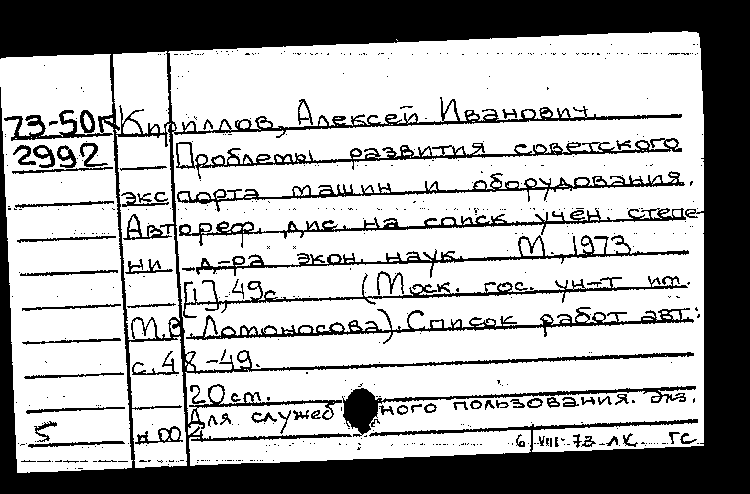 73-50к Кириллов, Алексей Иванович.
2992 Проблемы развития советского
экспорта машин и оборудования.
Автореф. дис. на соиск. учен. степе-
ни д-ра экон. наук. М., 1973.
[1], 49с. (Моск. гос. ун-т им.
М.В. Ломоносова). Список работ авт.:
с. 48-49.
20 см.
Для служебного пользования. Экз.
5 н.00 2.
6/VIII-73 ЛК ГС